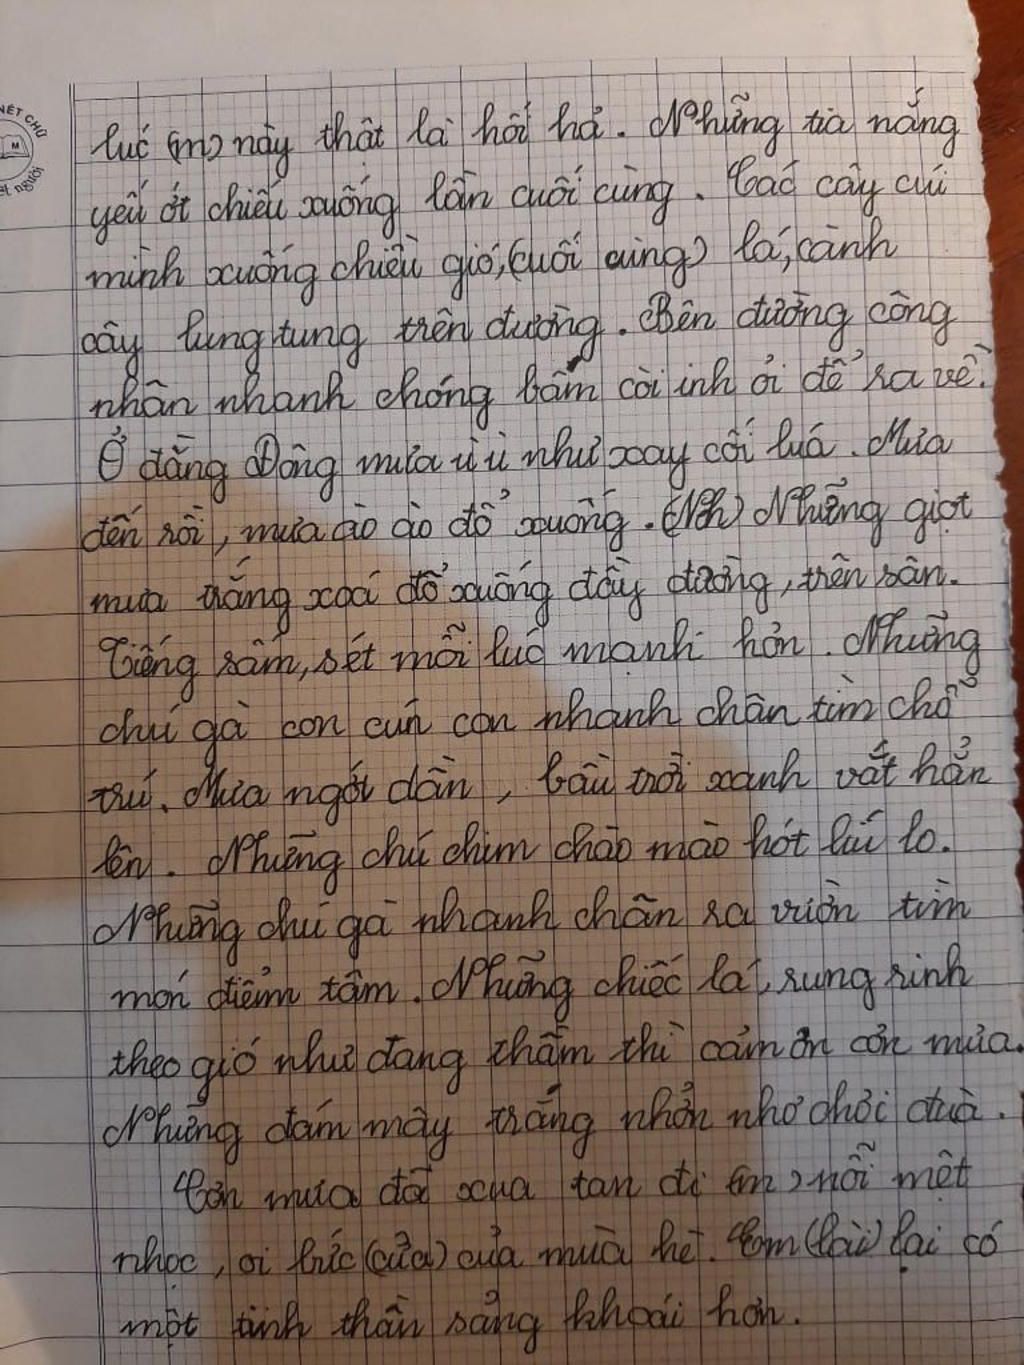 NÉT CHỮ
ết người
lúc (m) này thật là hối hả. Những tia nắng
yếu ớt chiếu xuống lần cuối cùng. Các cây cúi
mình xuống chiều gió, (cuối cùng) lá, cành
cây lung tung trên đường. Bên đường công
nhân nhanh chóng bấm còi inh ỏi để ra về.
Ở đằng Đông mưa ù ù như xay cối lúa. Mưa
đến rồi, mưa ào ào đổ xuống. (Nh) Những giọt
mưa trắng xoá đổ xuống đầy đường, trên sân.
Tiếng sấm, sét mỗi lúc mạnh hơn. Những
chú gà con cún con nhanh chân tìm chỗ
trú. Mưa ngớt dần, bầu trời xanh vắt hẳn
lên. Những chú chim chào mào hót líu lo.
Những chú gà nhanh chân ra vườn tìm
món điểm tâm. Những chiếc lá, rung rinh
theo gió như đang thầm thì cảm ơn cơn mưa.
Những đám mây trắng nhởn nhơ chơi đùa.
Cơn mưa đã xua tan đi (m) nỗi mệt
nhọc, oi bức (cửa) của mùa hè. Em (lài) lại có
một tinh thần sảng khoái hơn.